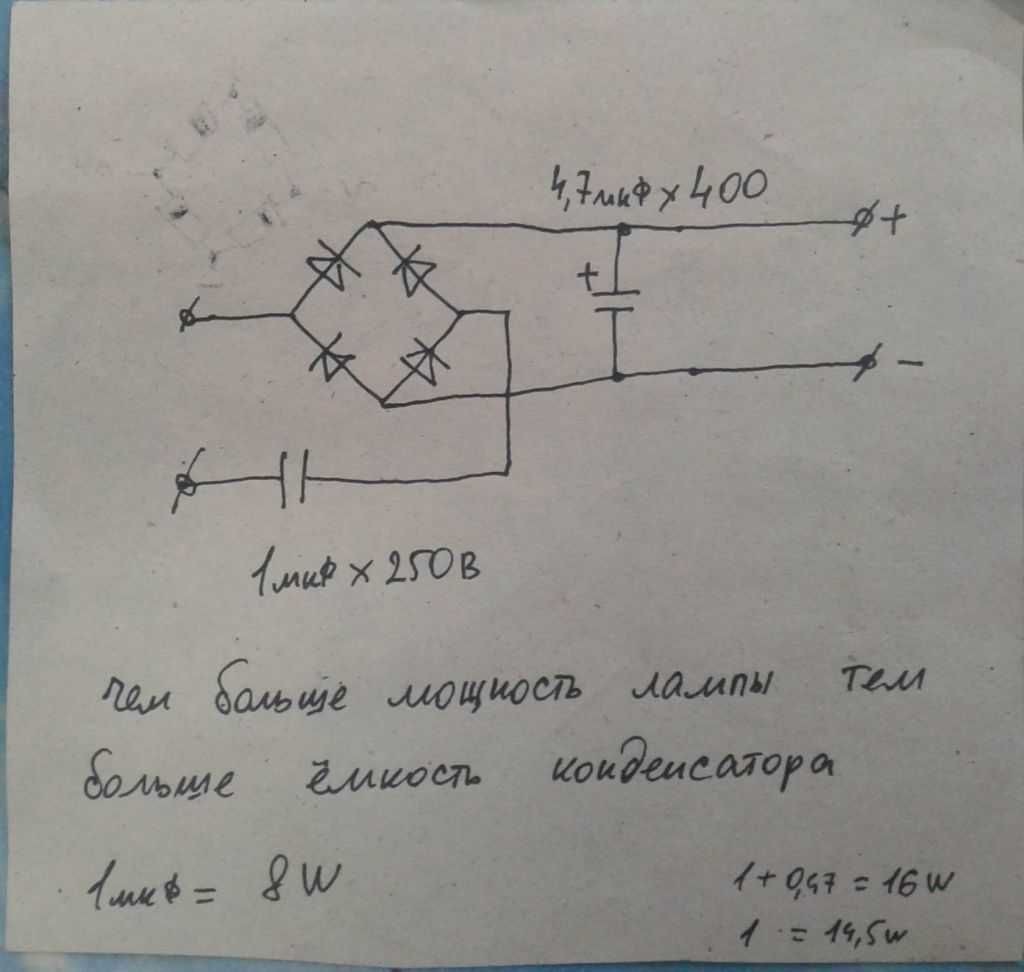 4,7мкФ х 400
+
+
-
1мкФ х 250В
чем больше мощность лампы тем
больше ёмкость конденсатора
1мкФ = 8W
1+0,47 = 16W
1 = 14,5W